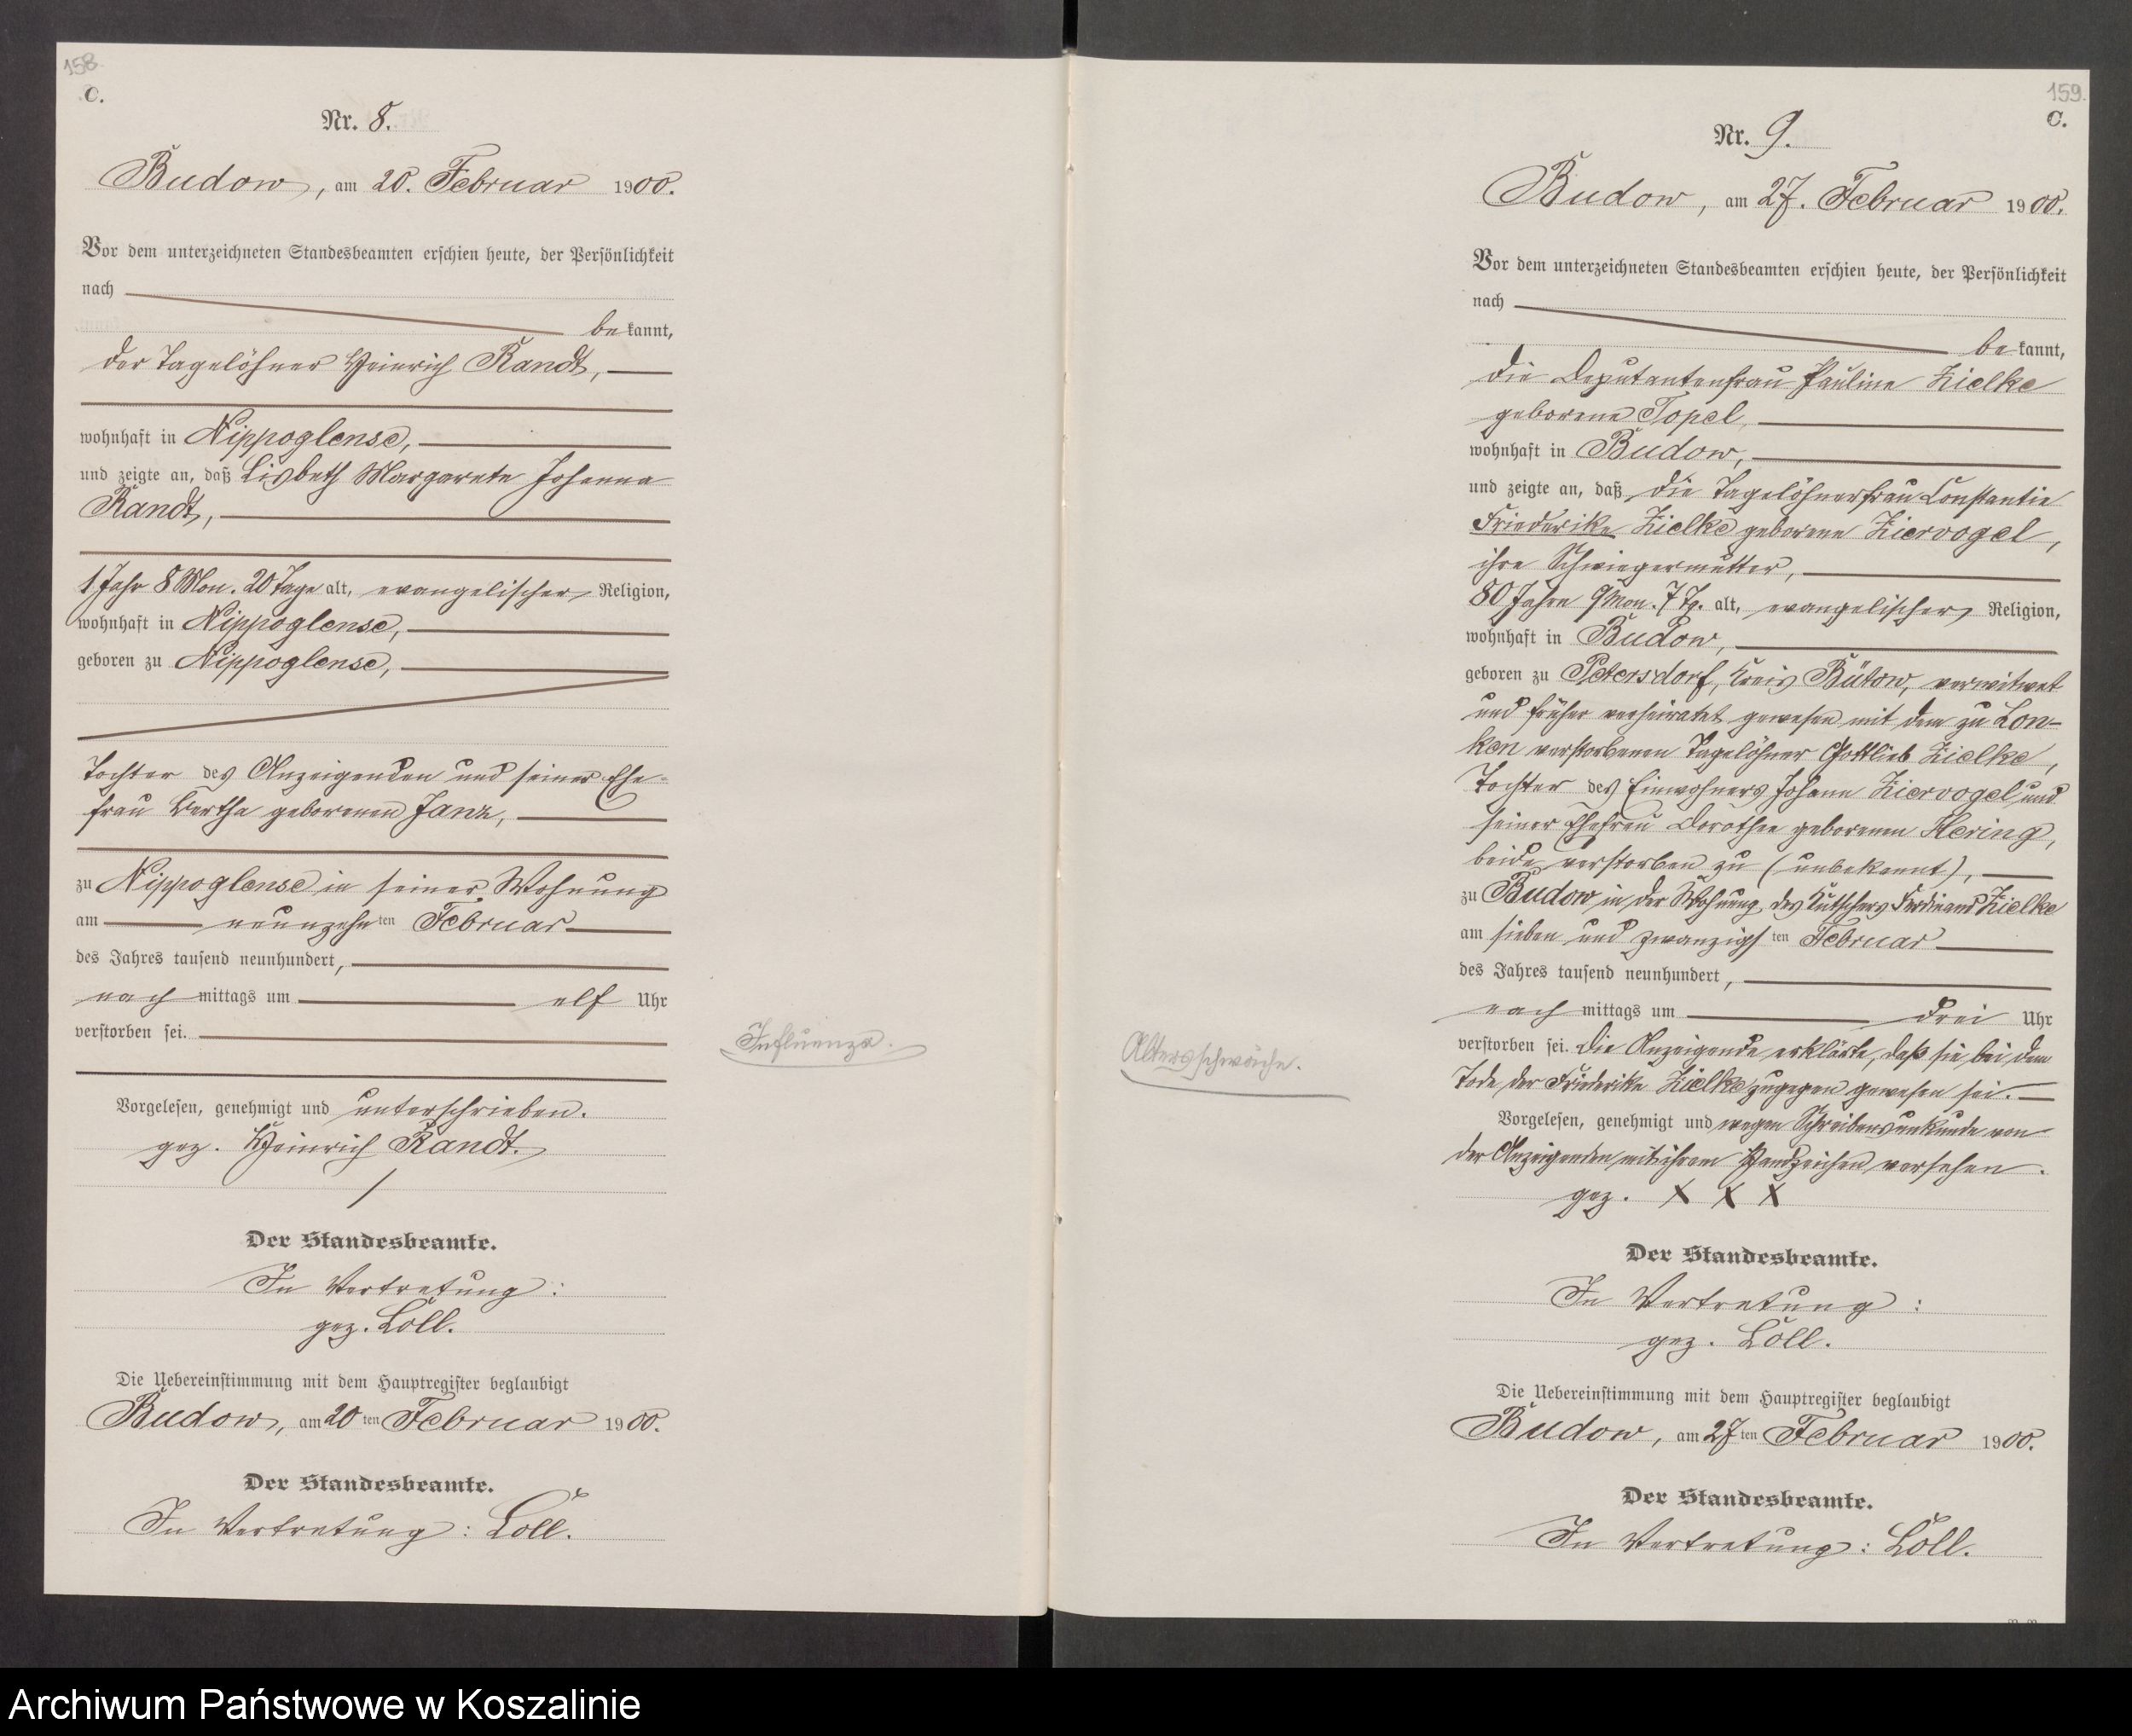 158.
C.
Nr. 8.
Budow, am 20. Februar 1900.
Vor dem unterzeichneten Standesbeamten erschien heute, der Persönlichkeit
nach
be kannt,
der Tagelöhner Heinrich Randt,
wohnhaft in Nippoglense,
und zeigte an, daß Lisbeth Margarete Johanna
Randt,
1 Jahr 8 Mon. 20 Tage alt, evangelischer Religion,
wohnhaft in Nippoglense,
geboren zu Nippoglense,
Tochter des Anzeigenden und seiner Ehe-
frau Bertha geborenen Janz,
zu Nippoglense in seiner Wohnung
am neunzehn ten Februar
des Jahres tausend neunhundert,
nach mittags um elf Uhr
verstorben sei.
Influenza.
Vorgelesen, genehmigt und unterschrieben.
gez. Heinrich Randt.
Der Standesbeamte.
In Vertretung:
gez. Löll.
Die Uebereinstimmung mit dem Hauptregister beglaubigt
Budow, am 20 ten Februar 1900.
Der Standesbeamte.
In Vertretung: Löll.
159.
C.
Nr. 9.
Budow, am 27. Februar 1900.
Vor dem unterzeichneten Standesbeamten erschien heute, der Persönlichkeit
nach
be kannt,
die Deputantenfrau Pauline Zielke
geborene Topel,
wohnhaft in Budow,
und zeigte an, daß die Tagelöhnerfrau Constantie
Friederike Zielke geborene Ziervogel,
ihre Schwiegermutter,
80 Jahre 9 Mon. 7 Tg. alt, evangelischer Religion,
wohnhaft in Budow,
geboren zu Petersdorf, Kreis Bütow, verwitwet
und früher verheiratet gewesen mit dem zu Lon-
ken verstorbenen Tagelöhner Gottlieb Zielke,
Tochter des Einwohners Johann Ziervogel und
seiner Ehefrau Dorothee geborenen Hering,
beide verstorben zu (unbekannt),
zu Budow in der Wohnung des Kutschers Ferdinand Zielke
am sieben und zwanzigs ten Februar
des Jahres tausend neunhundert,
nach mittags um drei Uhr
verstorben sei. Die Anzeigende erklärte, daß sie bei dem
Tode der Friederike Zielke zugegen gewesen sei.
Altersschwäche.
Vorgelesen, genehmigt und wegen Schreibensunkunde von
der Anzeigenden mit ihrem Handzeichen versehen.
gez. X X X
Der Standesbeamte.
In Vertretung:
gez. Löll.
Die Uebereinstimmung mit dem Hauptregister beglaubigt
Budow, am 27 ten Februar 1900.
Der Standesbeamte.
In Vertretung: Löll.
Archiwum Państwowe w Koszalinie